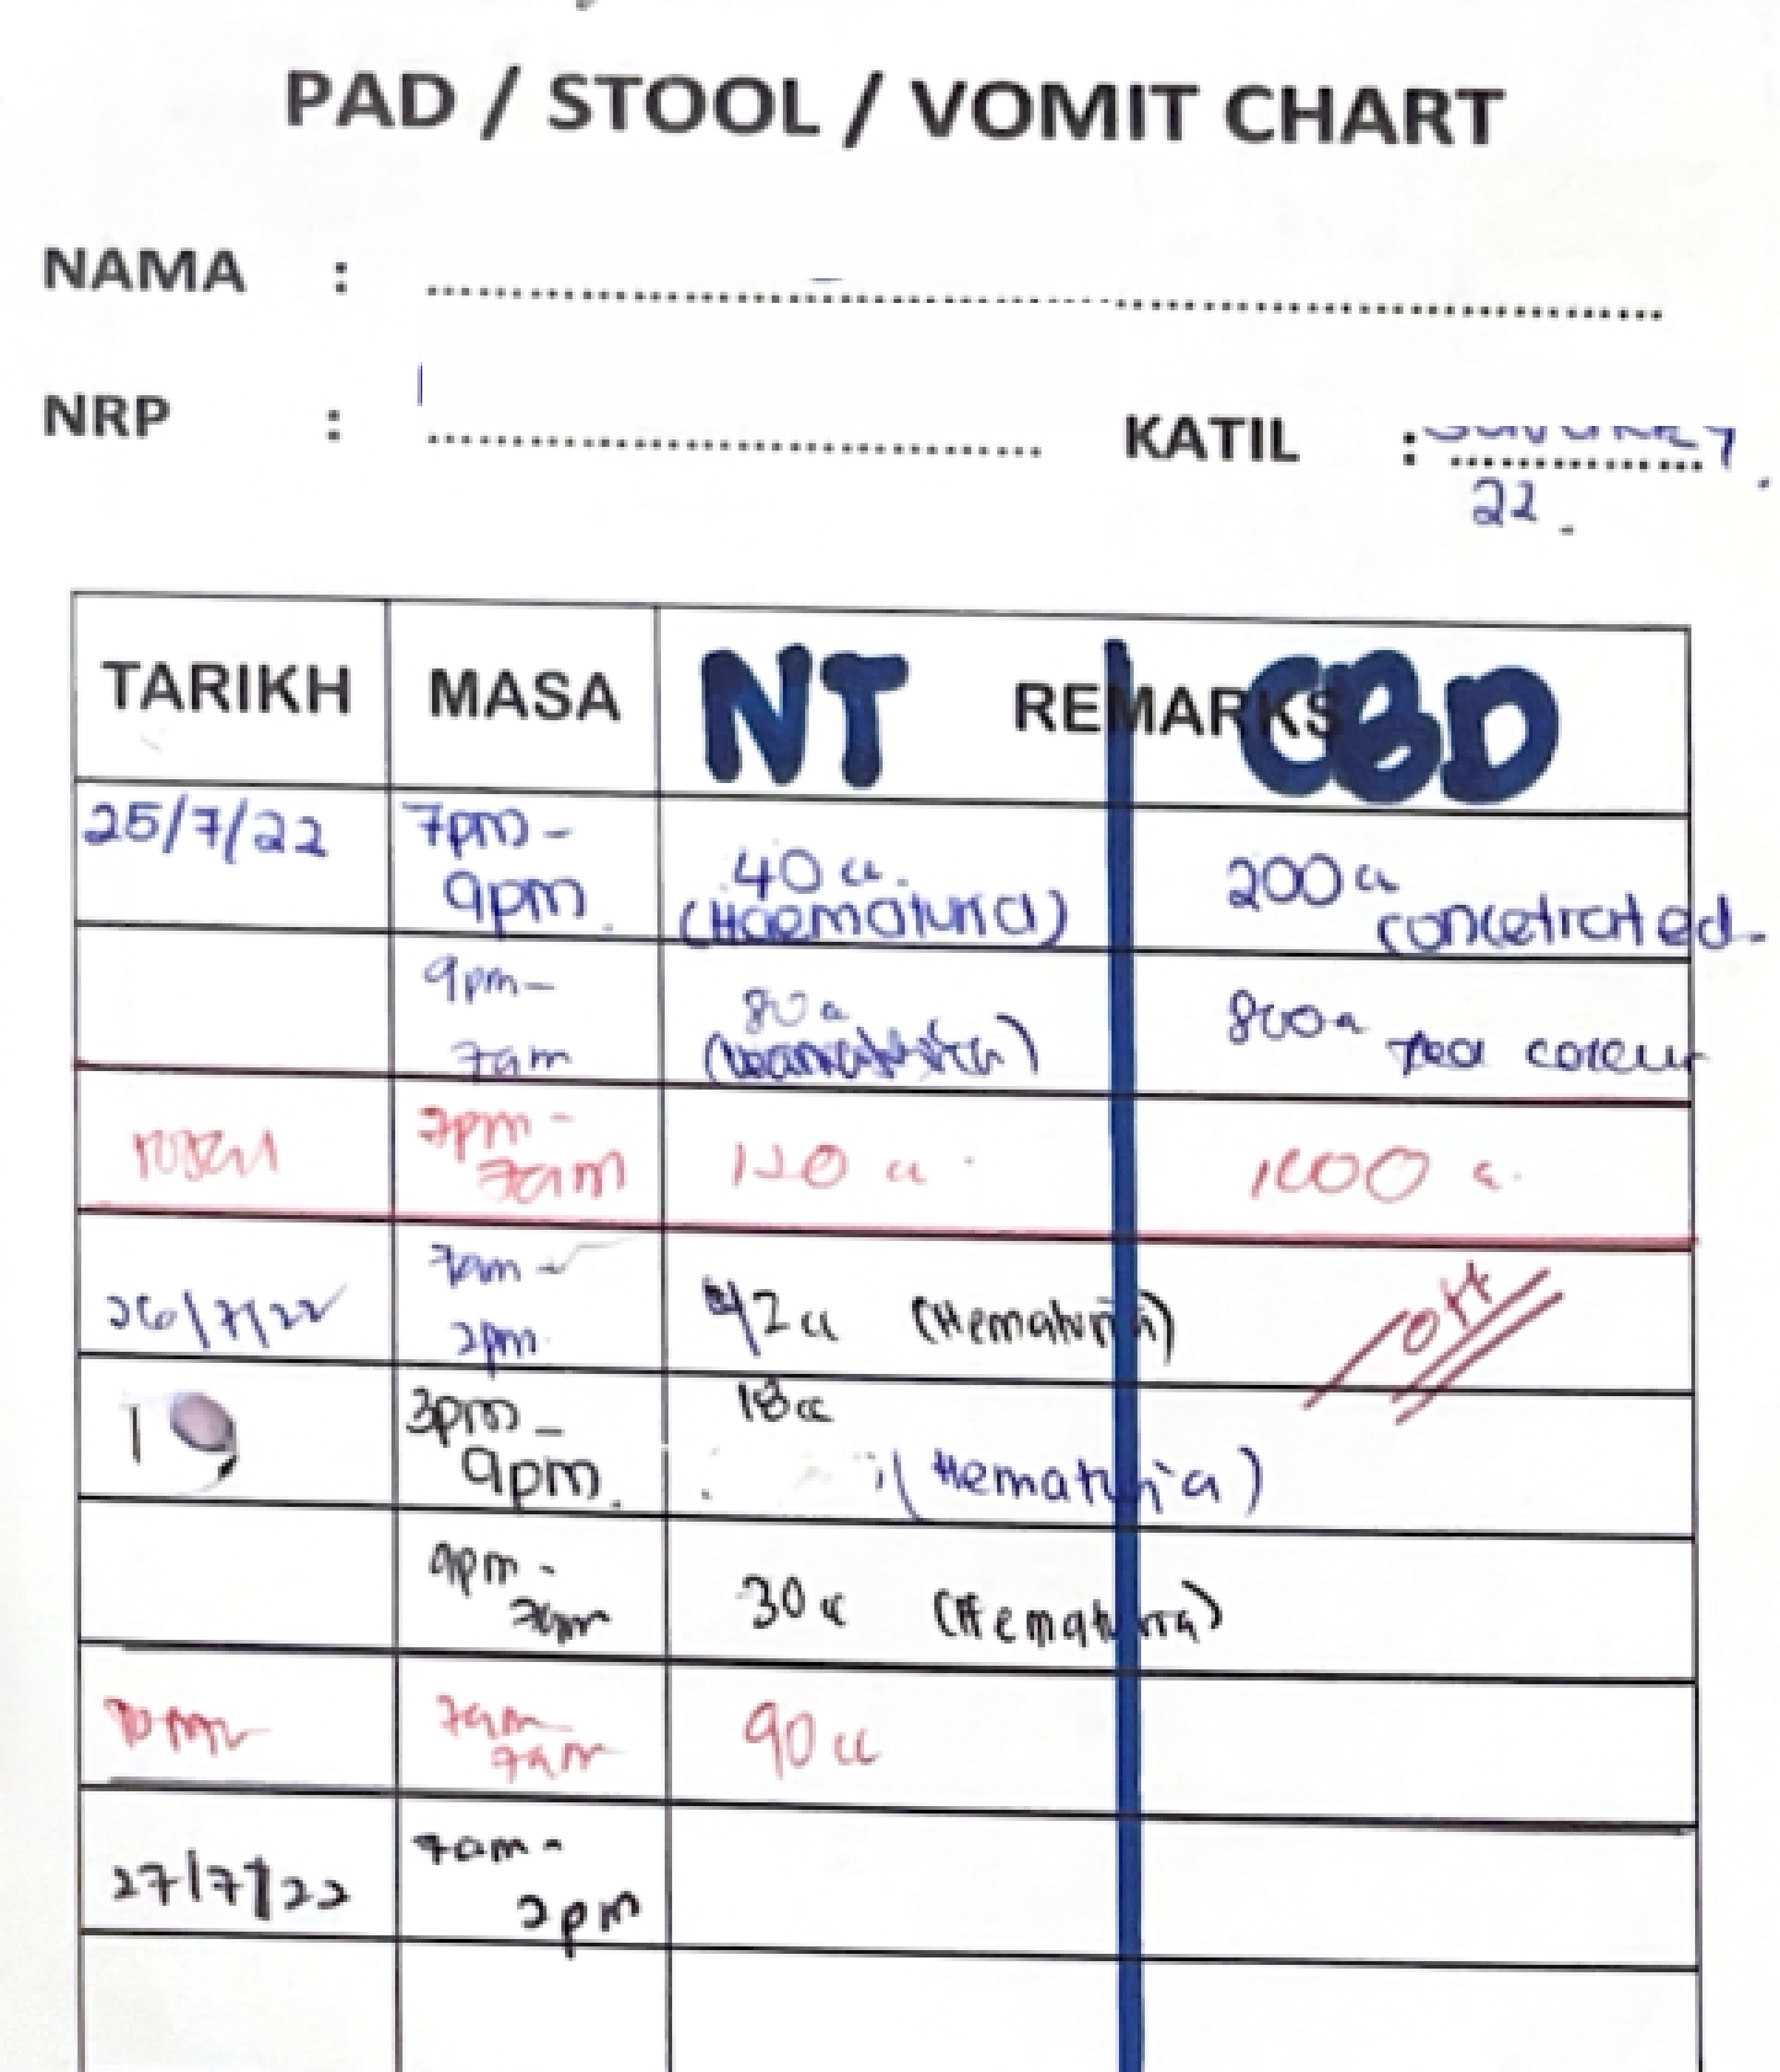 PAD / STOOL / VOMIT CHART
NAMA :
NRP : KATIL :
22.
TARIKH MASA REMARKS
NT CBD
25/7/22 7pm - 9pm. 40cc. (Haematuria) 200cc concetrated.
9pm - 7am 80cc 800cc tea colour
7pm - 7am 120cc. 1000cc.
26/7/22 7am - 2pm 42cc (Hematuria) off
3pm - 9pm. 18cc (Hematuria)
9pm - 7am 30cc (Hematuria)
7am 7am 90cc
27/7/22 7am - 2pm